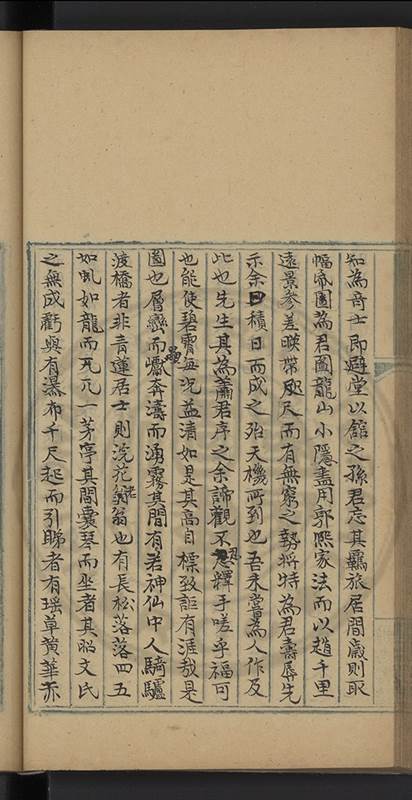 知為奇士即避堂以舘之孫君忘其羈旅居間歲則取
幅帝圖為君圖龍山小隱盡用郭熙家法而以趙千里
遠景參差暎帶咫尺而有無窮之勢將特為君壽辱先
示余曰積日而成之殆天機所到也吾未嘗為人作及
此也先生其為蕭君序之余諦觀不忍釋手嗟乎福可
也能使碧霄每況益清如是其高自標致詎有涯哉是
圖也層巒而巘奔濤而涌霧其間有若神仙中人騎驢
渡橋者非青蓮居士則浣花翁也有長松落落四五
如虬如龍而兀兀一茅亭其間囊琴而坐者其昭文氏
之無成虧與有瀑布千尺起而引睇者有瑶草黄華亦